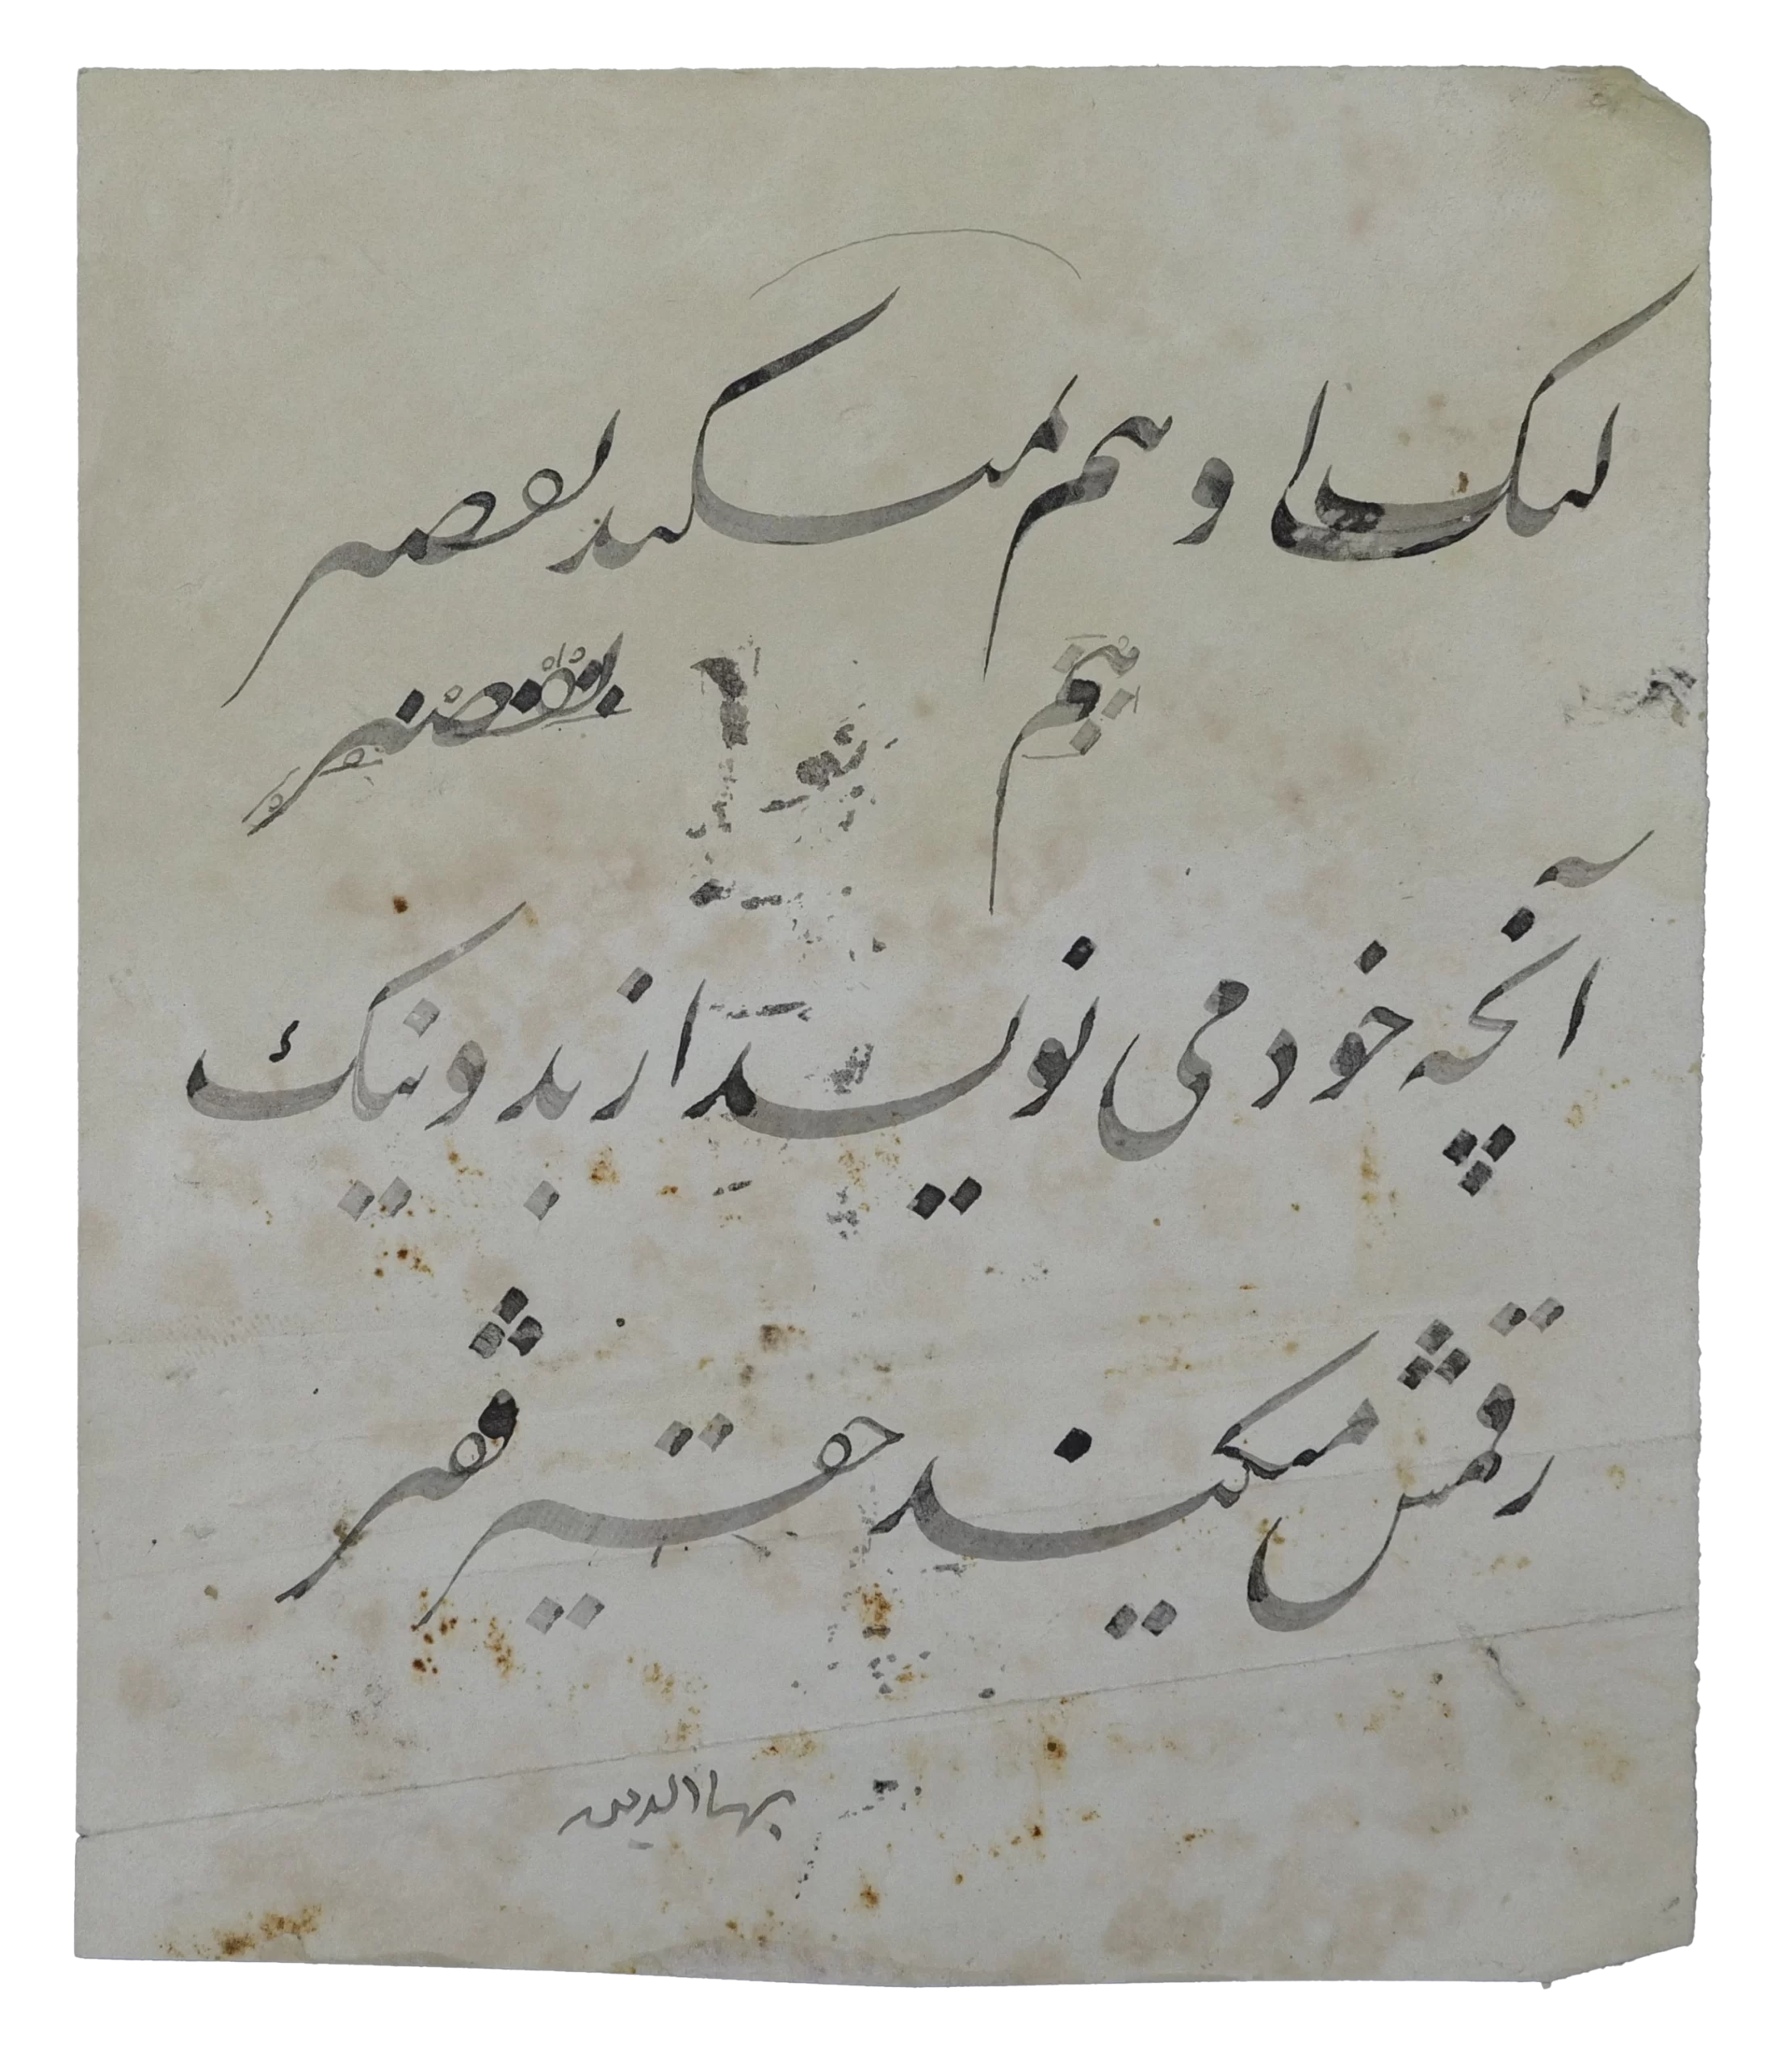 لیک او هم میکند تقصیر
هم تقصیر
آنچه خود می نویسد از بد و نیک
رقمش میکند حقیر فقیر
بهاالدین